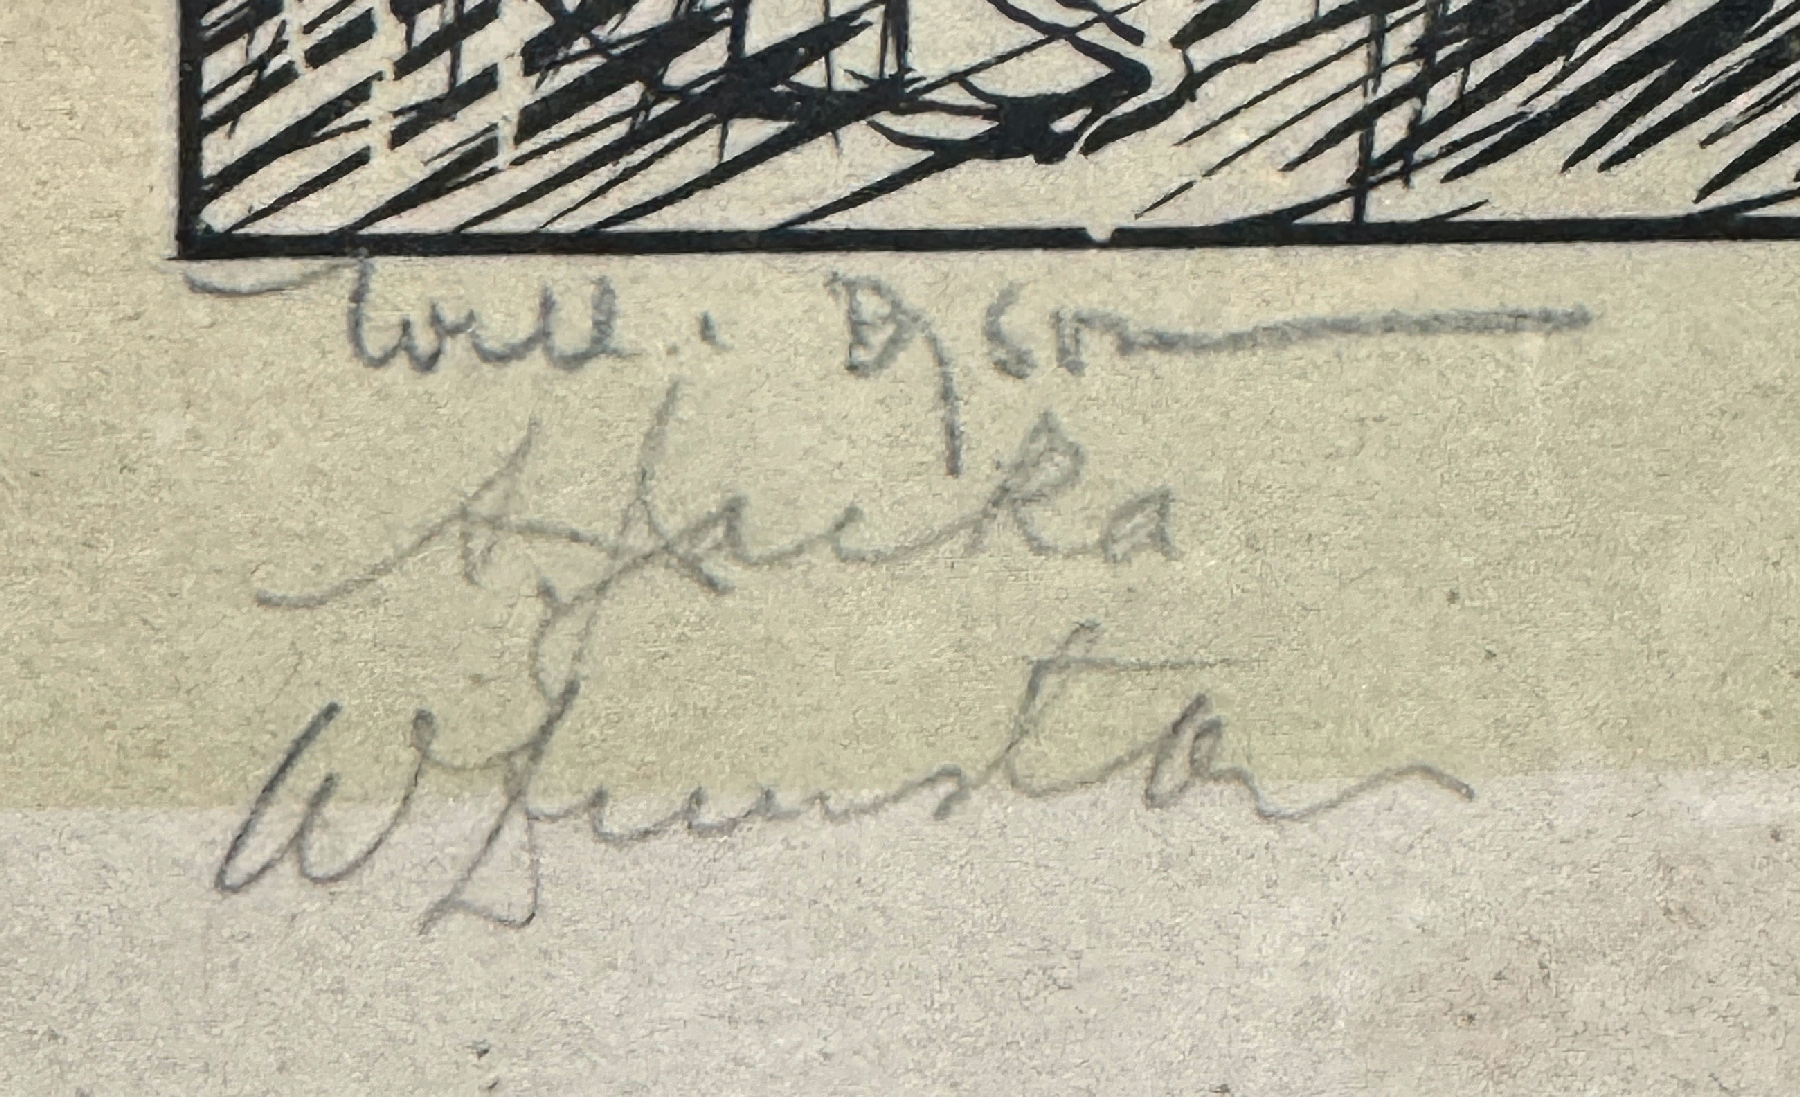 Will. Dyson
A Jacka
W Dunstan